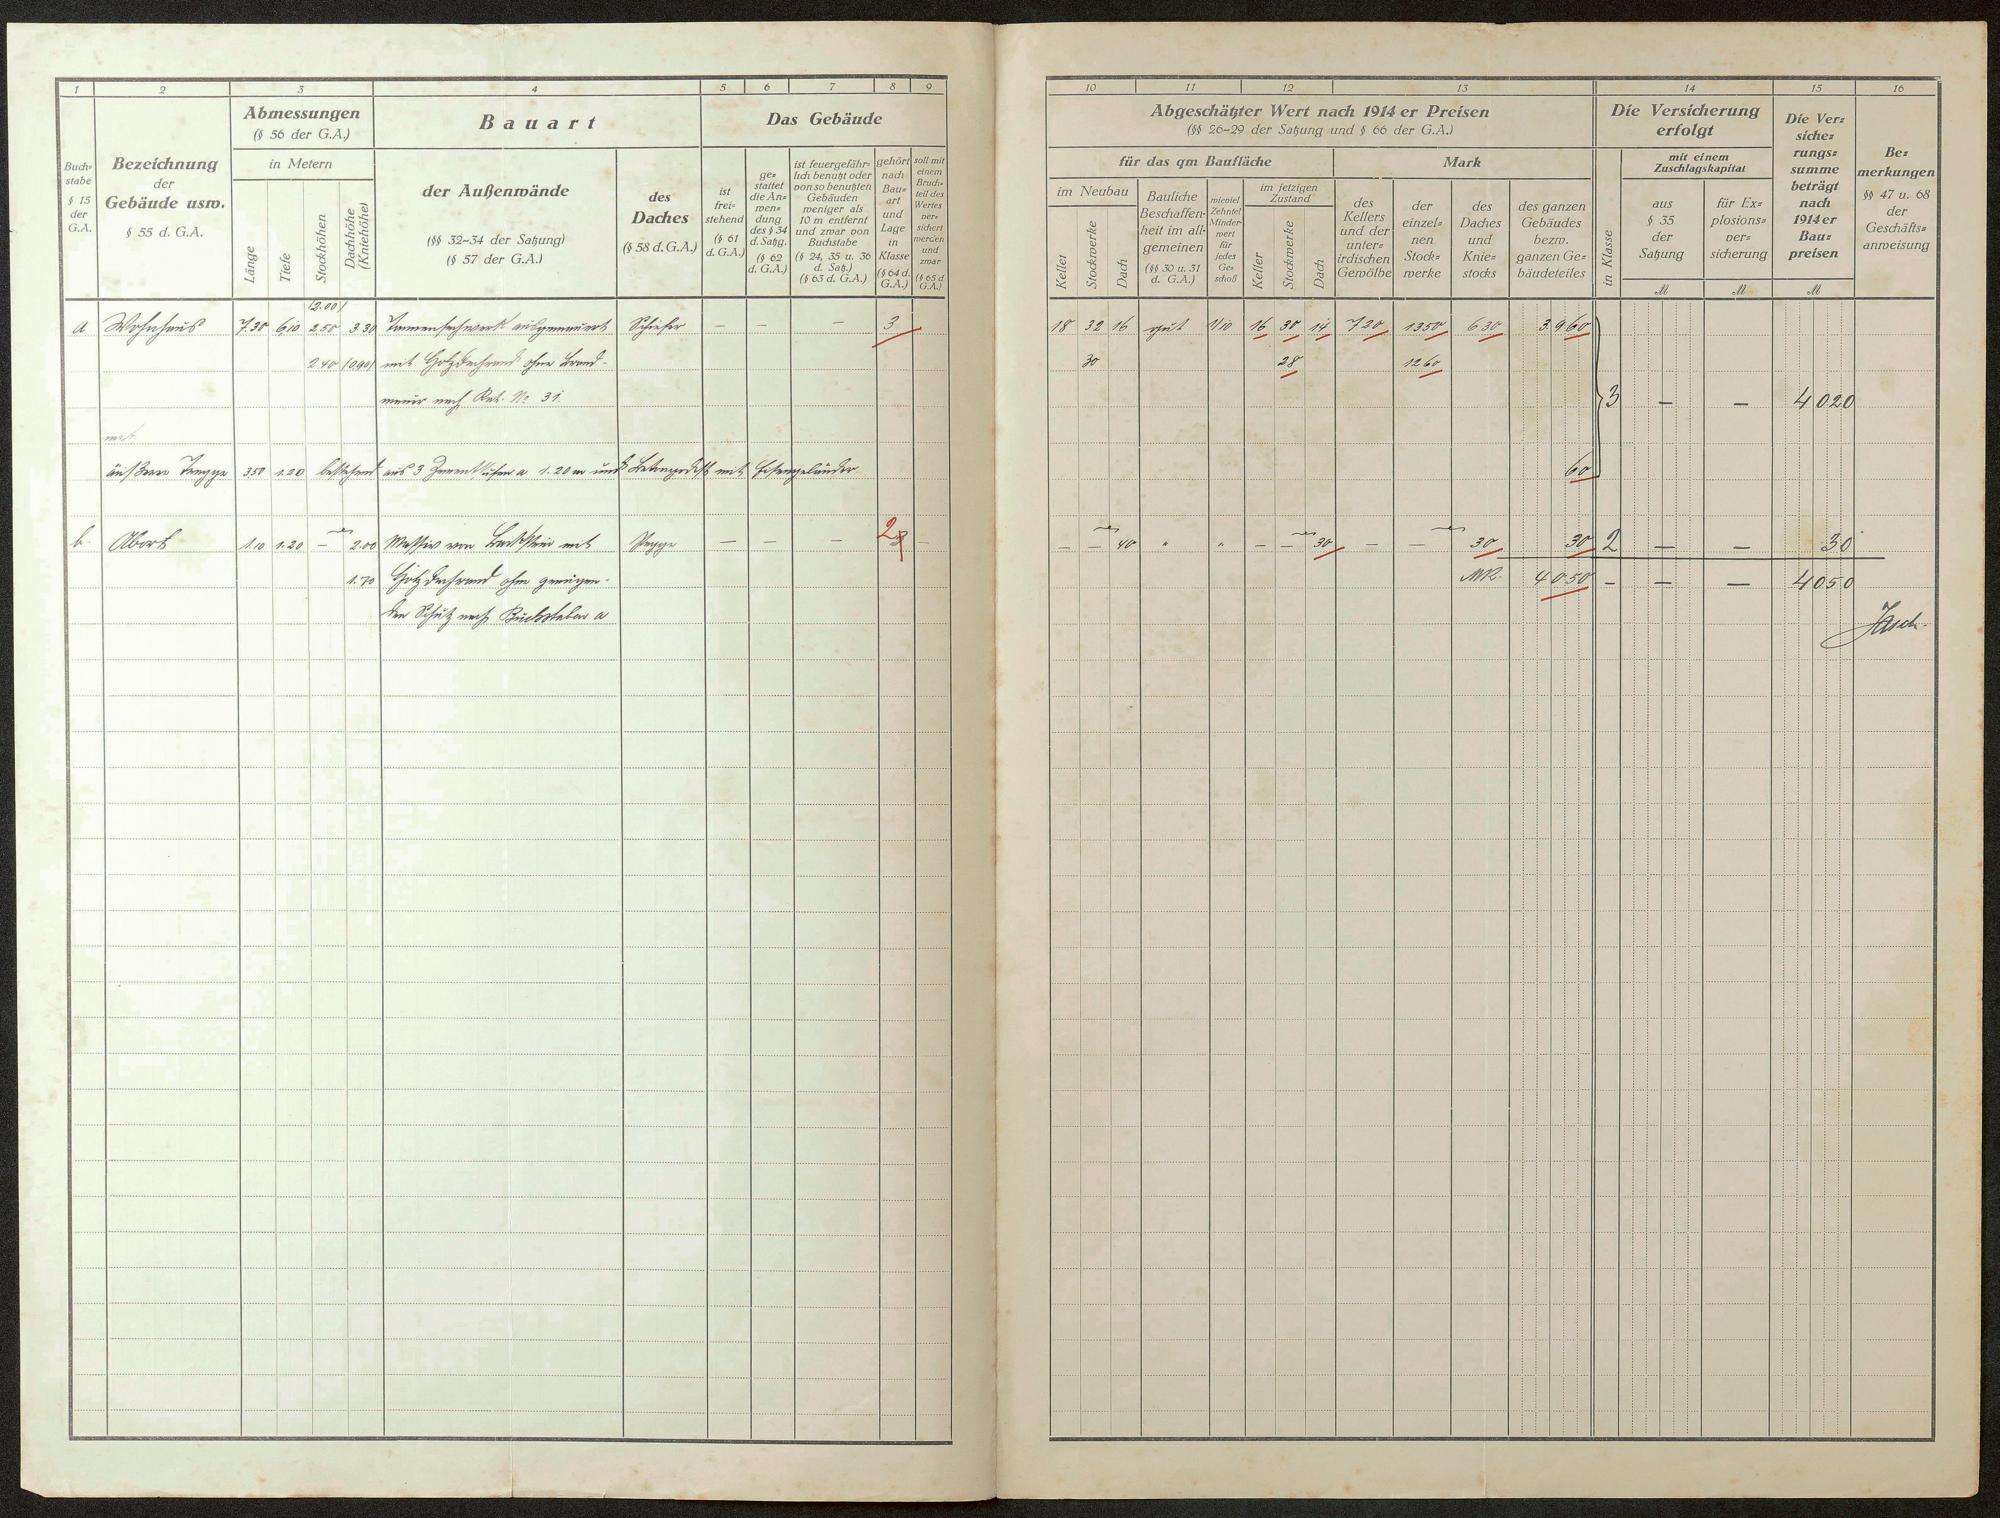 1 2 3 4 5 6 7 8 9
Buch=
stabe
§ 15
der
G.A.
Bezeichnung
der
Gebäude usw.
§ 55 d. G.A.
Abmessungen
(§ 56 der G.A.)
in Metern
Länge
Tiefe
Stockhöhen
Dachhöhe
(Kniehöhe)
Bauart
der Außenwände
(§§ 32-34 der Satzung)
(§ 57 der G.A.)
des
Daches
(§ 58 d. G.A.)
Das Gebäude
ist
frei=
stehend
(§ 61
d. G.A.)
ge=
stattet
die An=
wen=
dung
des § 34
d. Satzg.
(§ 62
d. G.A.)
ist feuergefähr=
lich benutzt oder
von so benutzten
Gebäuden
weniger als
10 m entfernt
und zwar von
Buchstabe
(§ 24, 35 u. 36
d. Satz.)
(§ 63 d. G.A.)
gehört
nach
Bau=
art
und
Lage
in
Klasse
(§ 64 d.
G.A.)
soll mit
einem
Bruch=
teil des
Wertes
ver=
sichert
werden
und
zwar
(§ 65 d.
G.A.)
(2.00)
a Wohnhaus 7.30 6,10 2.50 3.30 Tannenfachwerk ausgemauert Schiefer – – – 3
2.40 (0,90) mit Holzdachrand ohne Brand-
mauer nach Kat. No 31.
äußere Treppe 3,50 1.20 bestehend aus 3 Zementstufen a 1.20 m und Betonpodest mit Eisengeländer
b. Abort 1.10 1.20 – 2.00 Massiv von Backstein mit Pappe – – – 2 –
1.70 Holzdachrand ohne genügen-
den Schutz nach Buchstaben a
10 11 12 13 14 15 16
Abgeschätzter Wert nach 1914 er Preisen
(§§ 26-29 der Satzung und § 66 der G.A.)
für das qm Baufläche
im Neubau
Keller
Stockwerke
Dach
Bauliche
Beschaffen=
heit im all=
gemeinen
(§§ 30 u. 31
d. G.A.)
wieviel
Zehntel
Minder=
wert
für
jedes
Ge=
schoß
im jetzigen
Zustand
Keller
Stockwerke
Dach
Mark
des
Kellers
und der
unter=
irdischen
Gewölbe
der
einzel=
nen
Stock=
werke
des
Daches
und
Knie=
stocks
des ganzen
Gebäudes
bezw.
ganzen Ge=
bäudeteiles
Die Versicherung
erfolgt
in Klasse
mit einem
Zuschlagskapital
aus
§ 35
der
Satzung
für Ex=
plosions=
ver=
sicherung
Die Ver=
siche=
rungs=
summe
beträgt
nach
1914 er
Bau=
preisen
Be=
merkungen
§§ 47 u. 68
der
Geschäfts=
anweisung
M M M
18 32 16 gut 1/10 16 30 14 720 1350 630 3.960
30 28 1260
3 – – 4020
60
– – 40 " " – – 30 – – 30 30 2 – – 30
Mk. 4050 – – – 4050